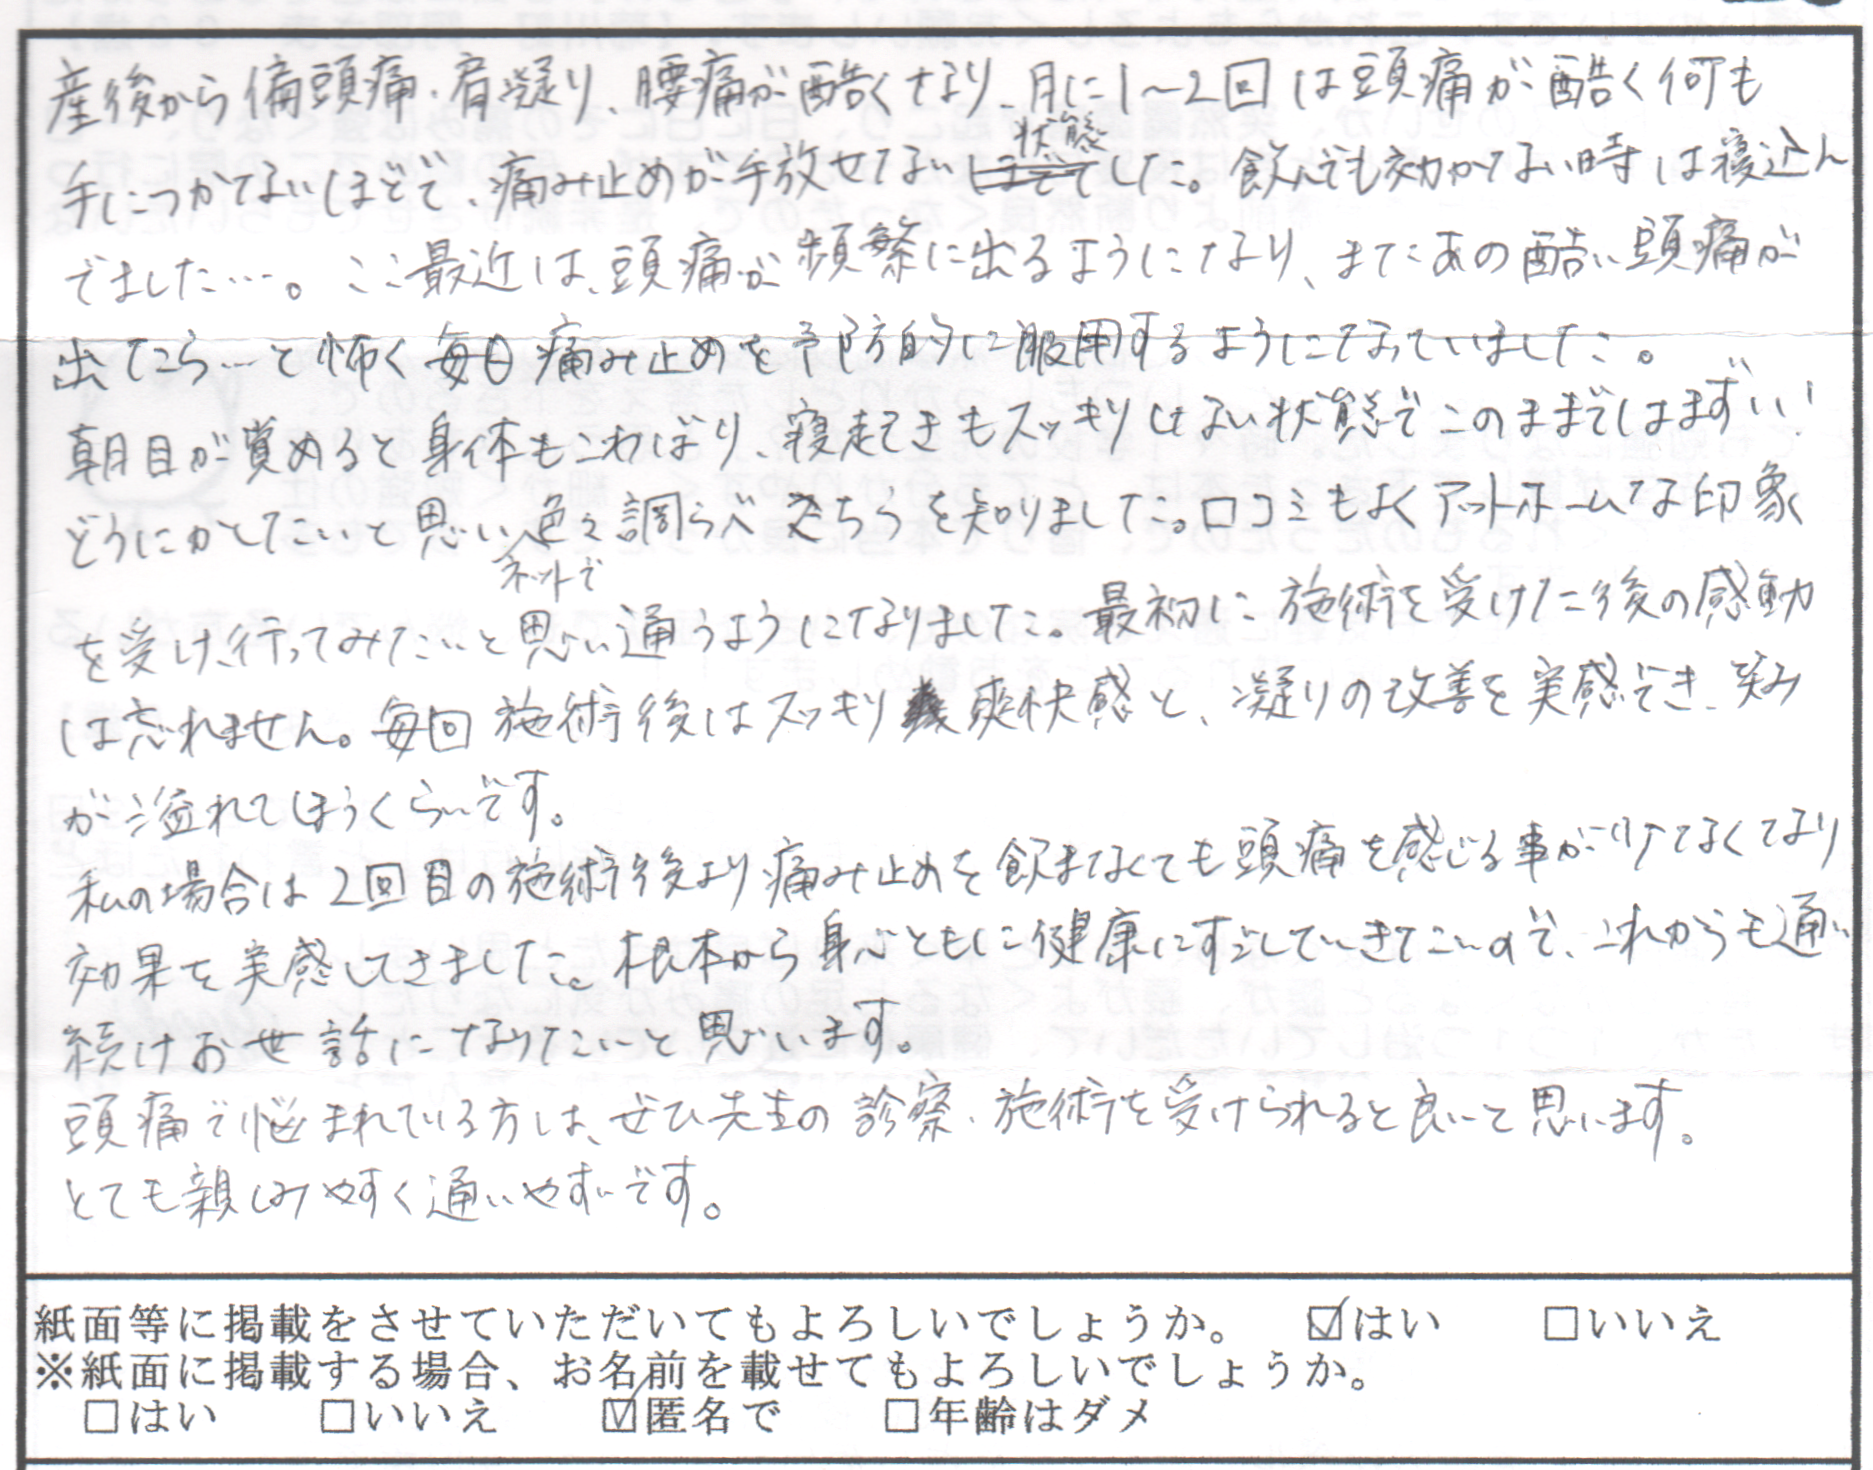 産後から偏頭痛・肩凝り、腰痛が酷くなり、月に1〜2回は頭痛が酷く何も
手につかないほどで、痛み止めが手放せない状態でした。飲んでも効かない時は寝込ん
でました…。ここ最近は、頭痛が頻繁に出るようになり、またあの酷い頭痛が
出たら…と怖く毎日痛み止めを予防的に服用するようになっていました。
朝目が覚めると身体もこわばり、寝起きもスッキリしない状態でこのままではまずい!
どうにかしたいと思い、ネットで色々調らべこちらを知りました。口コミもよくアットホームな印象
を受け、行ってみたいと思い通うようになりました。最初に施術を受けた後の感動
は忘れません。毎回施術後はスッキリ爽快感と、凝りの改善を実感でき、笑み
が溢れてしまうくらいです。
私の場合は2回目の施術後より痛み止めを飲まなくても頭痛を感じる事が少なくなり
効果を実感してきました。根本から身心ともに健康にすごしていきたいので、これからも通い
続けお世話になりたいと思います。
頭痛で悩まれている方は、ぜひ先生の診察・施術を受けられると良いと思います。
とても親しみやすく通いやすいです。
紙面等に掲載をさせていただいてもよろしいでしょうか。 ☑はい □いいえ
※紙面に掲載する場合、お名前を載せてもよろしいでしょうか。
□はい □いいえ ☑匿名で □年齢はダメ